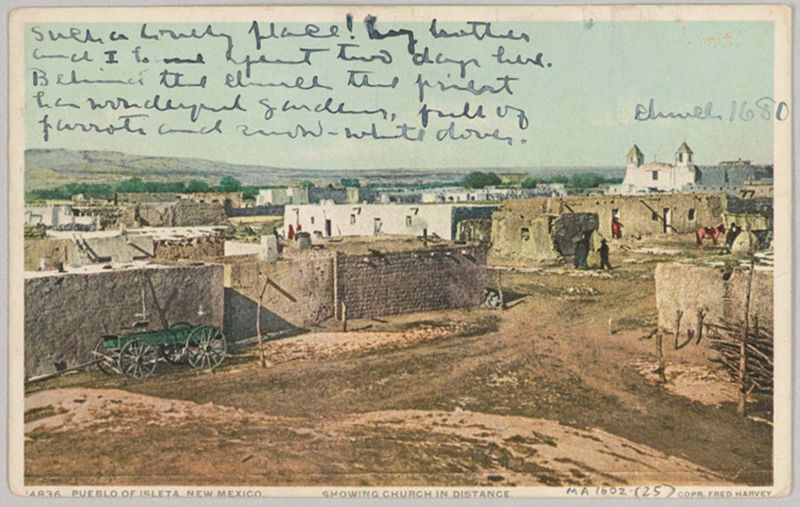 Such a lovely place! My brother
and I have spent two days here.
Behind the church the priest
has wonderful gardens, full of
parrots and snow-white doves.
church 1680
14836. PUEBLO OF ISLETA, NEW MEXICO. SHOWING CHURCH IN DISTANCE. MA 1602-(25) COPR. FRED HARVEY